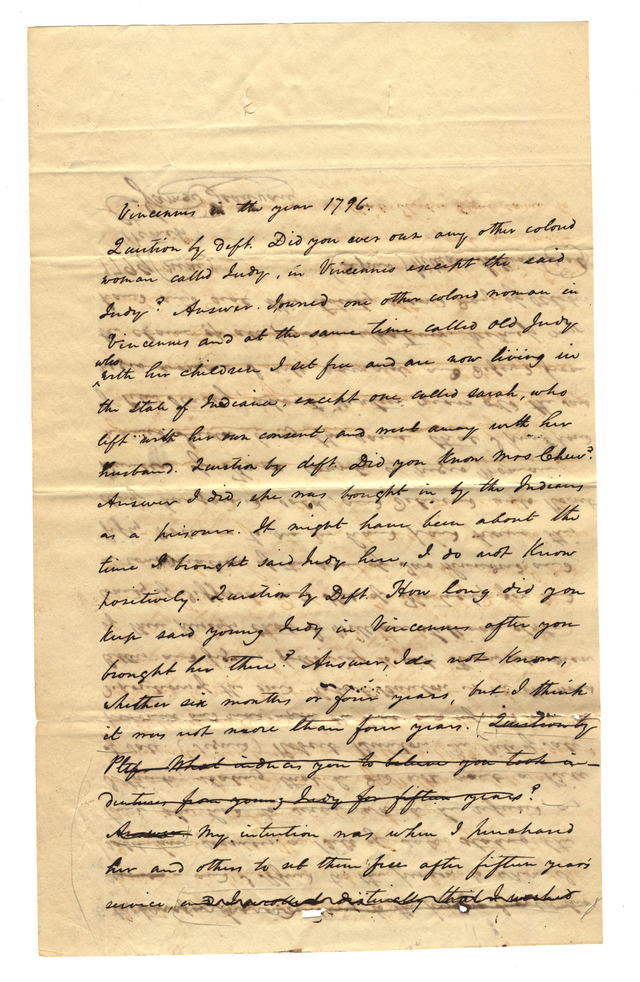 Vincennes in the year 1796.
Question by deft. Did you ever own any other colored
woman called Judy, in Vincennes except the said
Judy? Answer. I owned one other colored woman in
Vincennes and at the same time called old Judy
who
with her children I set free and are now living in
the state of Indiana, except one called Sarah, who
left with her own consent, and went away with her
husband. Question by deft. Did you know Mrs
Answer I did, she was bought in by the Indians
as a prisoner. It might have been about the
time I brought said Judy here, I do not know
positively. Question by Deft. How long did you
keep said young Judy in Vincennes after you
brought her there? Answer, I do not know,
whether six months or four years, but I think
it was not more than four years. (Question by
Pltf. What induces you to believe you took in-
dentures from young Judy for fifteen years?
Answer My intention was when I purchased
her and others to set them free after fifteen years
service and I distinctly that I wished